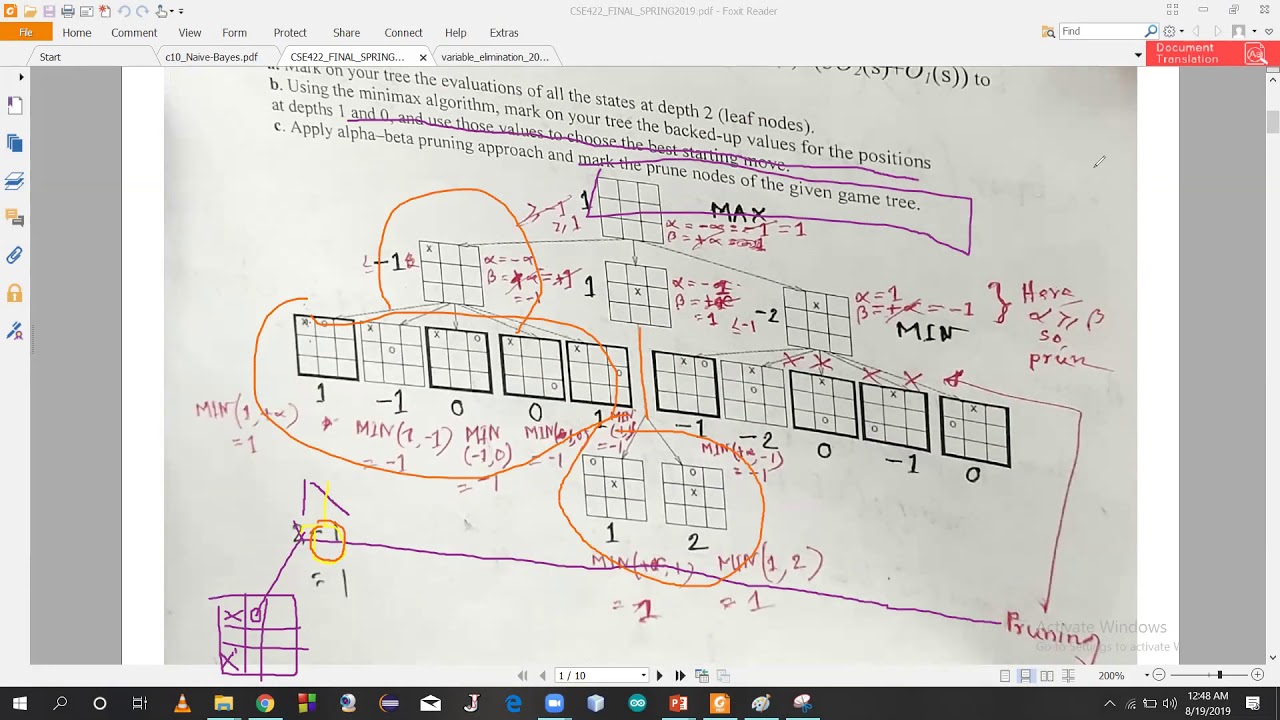 CSE422_FINAL_SPRING2019.pdf - Foxit Reader
File Home Comment View Form Protect Share Connect Help Extras
Find
Start c10_Naive-Bayes.pdf CSE422_FINAL_SPRING... variable_elimination_20...
Document Translation
a. Mark on your tree the evaluations of all the states at depth 2 (leaf nodes).
b. Using the minimax algorithm, mark on your tree the backed-up values for the positions
at depths 1 and 0, and use those values to choose the best starting move.
c. Apply alpha–beta pruning approach and mark the prune nodes of the given game tree.
1 MAX
≤ -1
α = -∞
1
≤ -1 -2
α = 1
MIN
Here
α ≥ β
so
prun
1 -1 0 0 1 -1 -2 0 -1 0
MIN(1, +∞)
= 1
MIN(1, -1)
= -1
MIN
(-1, 0)
= -1
1 2
MIN(+∞, 1)
= 1
MIN(1, 2)
= 1
2 -1
= 1
Pruning
Activate Windows
Go to Settings to activate W
1 / 10
200%
12:48 AM
8/19/2019